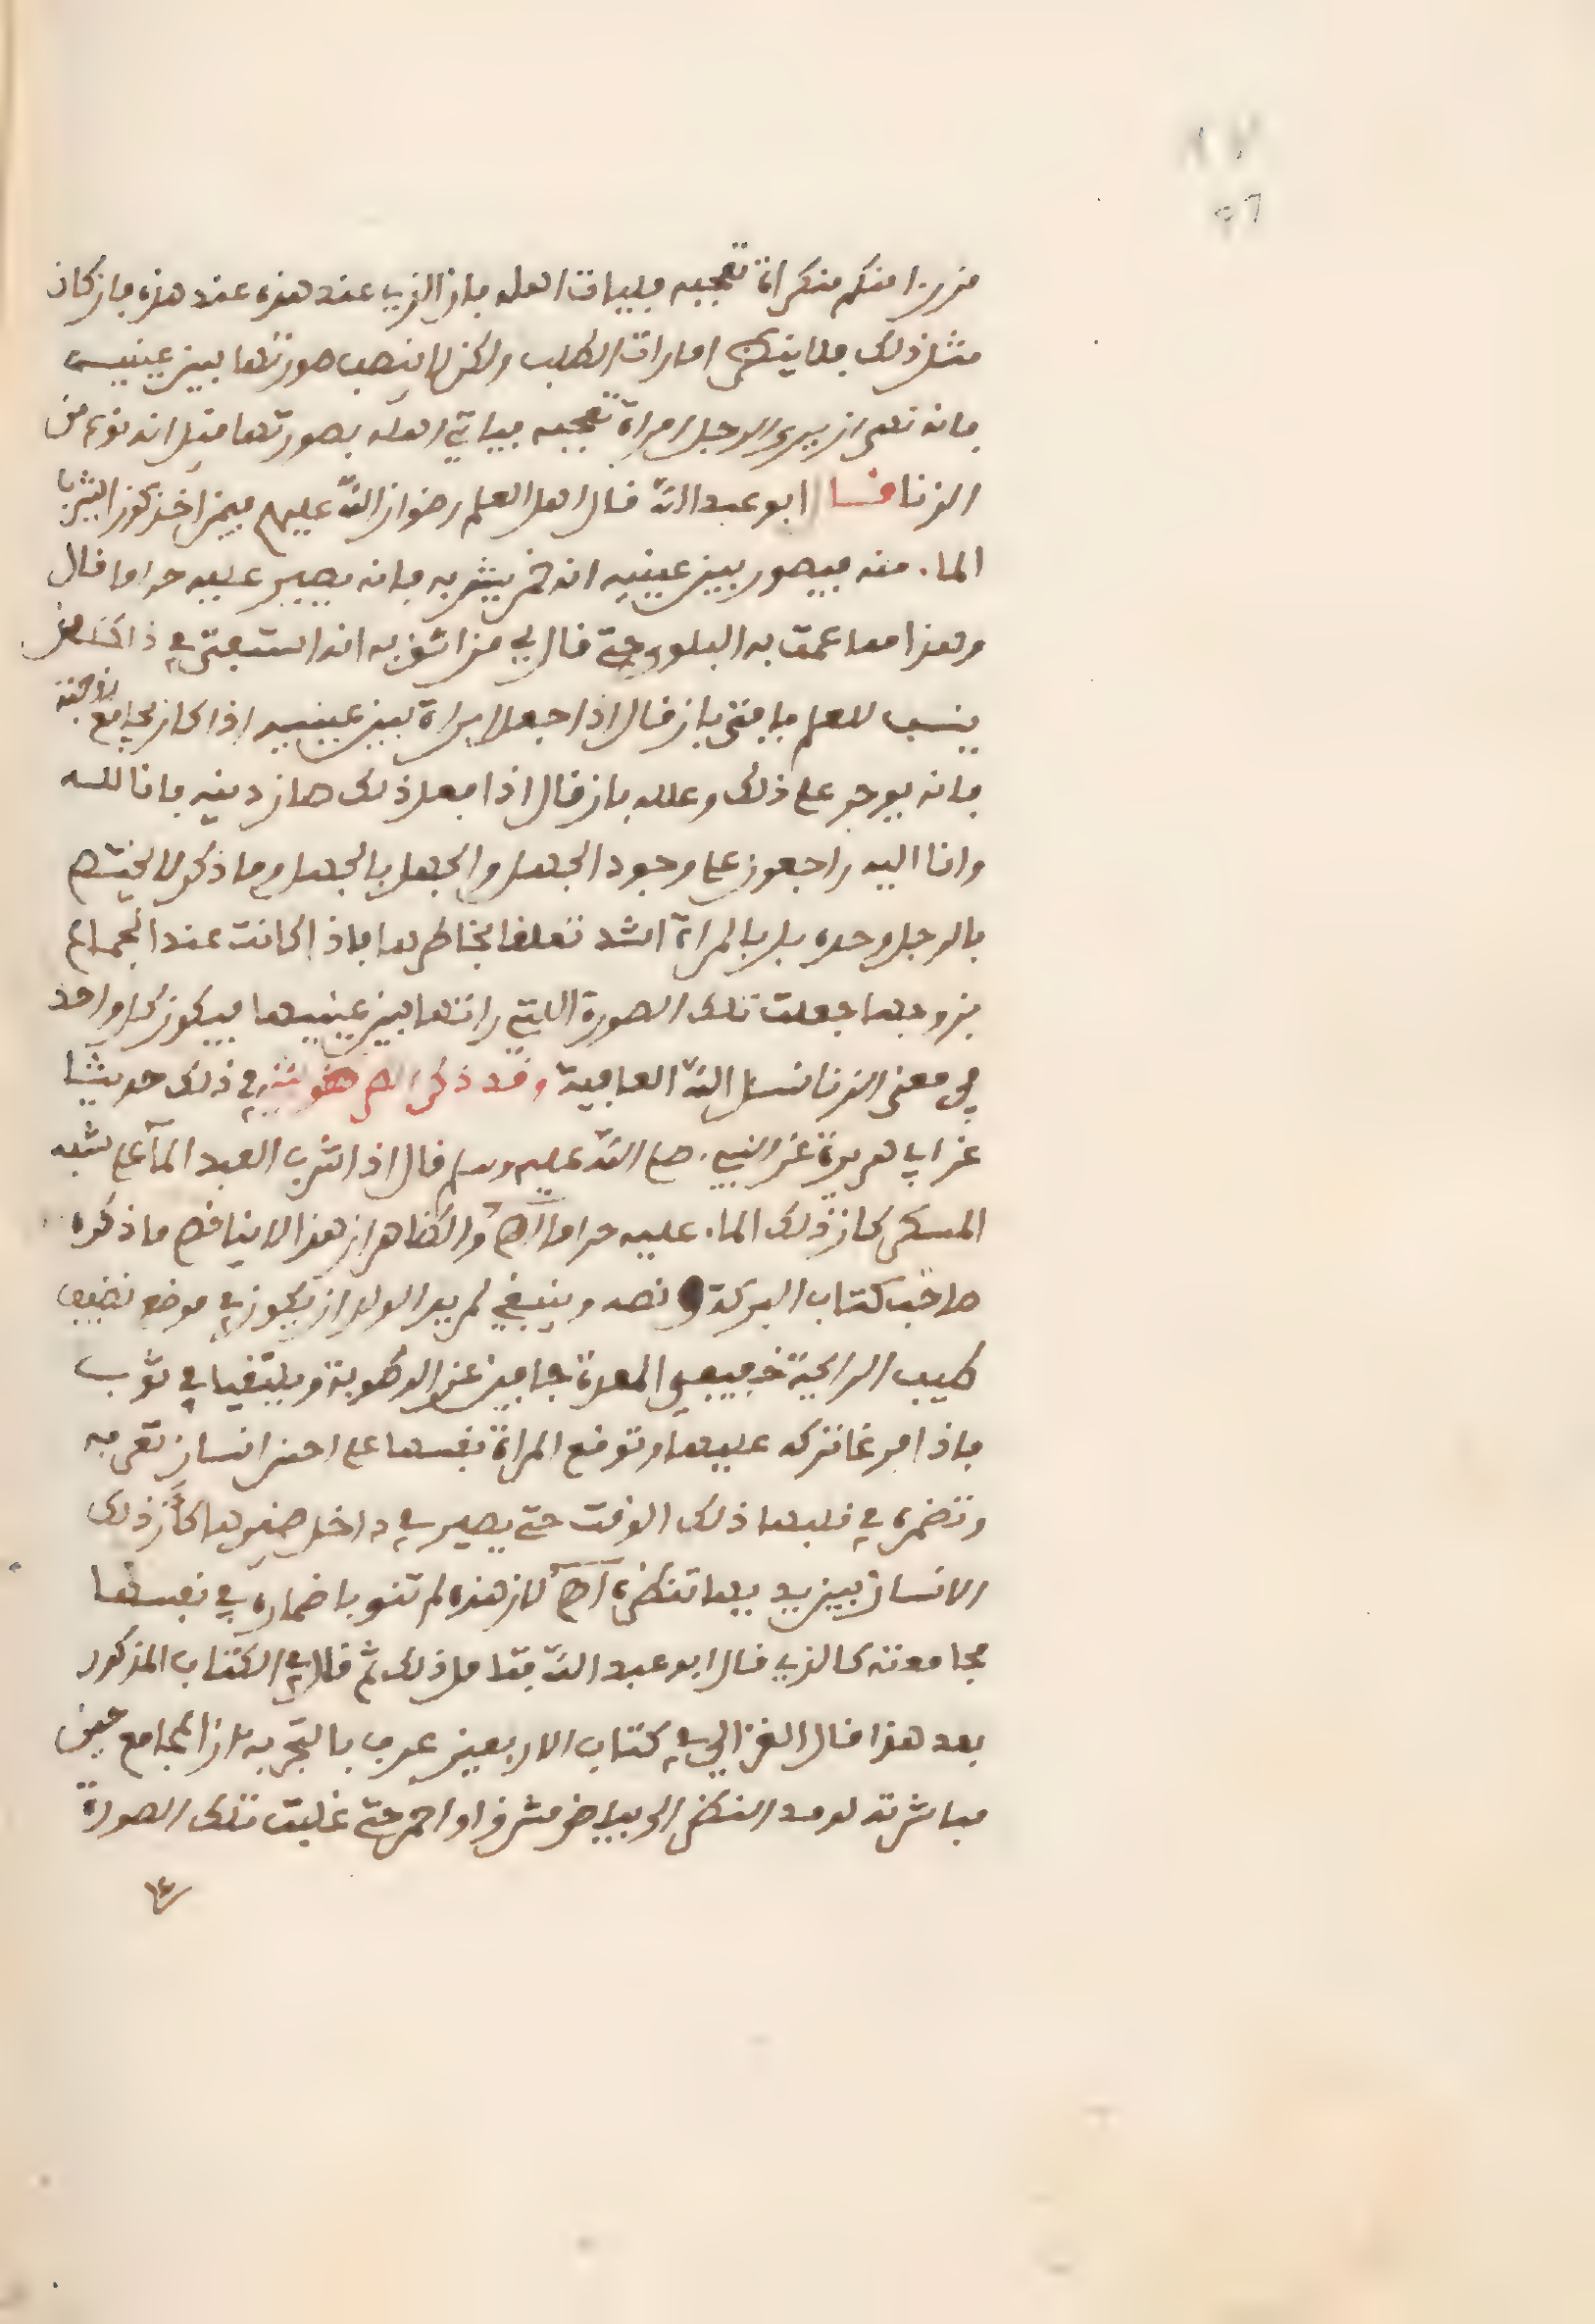 من را منكم منكراة تعجبه فليات اهله فان الذي عند هذه عند هذه فان كان
مثل ذلك فلا ينظر امارات الطلب ولكن لا ينصب صورتها بين عينيه
فانه نهى ان يرى الرجل امراة تعجبه فياتي اهله بصورتها فقيل انه نوع من
الزنا قال ابو عبد الله قال اهل العلم رضوان الله عليهم فيمن اخذ كوزا يشرب
الماء منه فيصور بين عينيه انه خمر يشربه فانه يصير عليه حراما قال
وهذا مما عمت به البلوى حتى قال لي من اثق به انه استفتى في ذلك من
ينسب للعلم فافتى بان قال اذا جعل امراة بين عينيه اذا كان يجامع زوجته
فانه يوجر على ذلك وعلله بان قال اذا فعل ذلك صان دينه فانا لله
وانا اليه راجعون على وجود الجهل والجهل بالجهل وما ذكر لا يختص
بالرجل وحده بل بالمراة اشد تعلقا بخاطرها فاذا كانت عند الجماع
بزوجها جعلت تلك الصورة اللتي راتها بين عينيها فيكون كل واحد
في معنى الزنا نسئل الله العافية وقد ذكر في ذلك حديثا
عن ابي هريرة عن النبي صلى الله عليه وسلم قال اذا شرب العبد الماء على شبه
المسكر كان ذلك الماء عليه حراما اهـ والظاهر ان هذا لا يناقض ما ذكره
صاحب كتاب البركة ونصه وينبغي لمريد الولد ان يكون في موضع نظيف
طيب الرايحة خفيفي المعدة جافين عن الرطوبة ويلتقيا في ثوب
فاذا فرغا تركه عليها وتوقع المراة نفسها على احسن انسان تعرفه
وتضمره في قلبها ذلك الوقت حتى يصير في داخل ضميرها كأن ذلك
الانسان بين يديها تنظره اهـ لان هذه لم تنو باضماره في نفسها
مجامعته كالذي قال ابو عبد الله فتامل ذلك ثم قال في الكتاب المذكور
بعد هذا قال الغزالي في كتاب الاربعين عرف بالتجربة ان المجامع حين
مباشرته لو مد النظر الى بياض مشرق او احمر حتى غلبت تلك الصورة